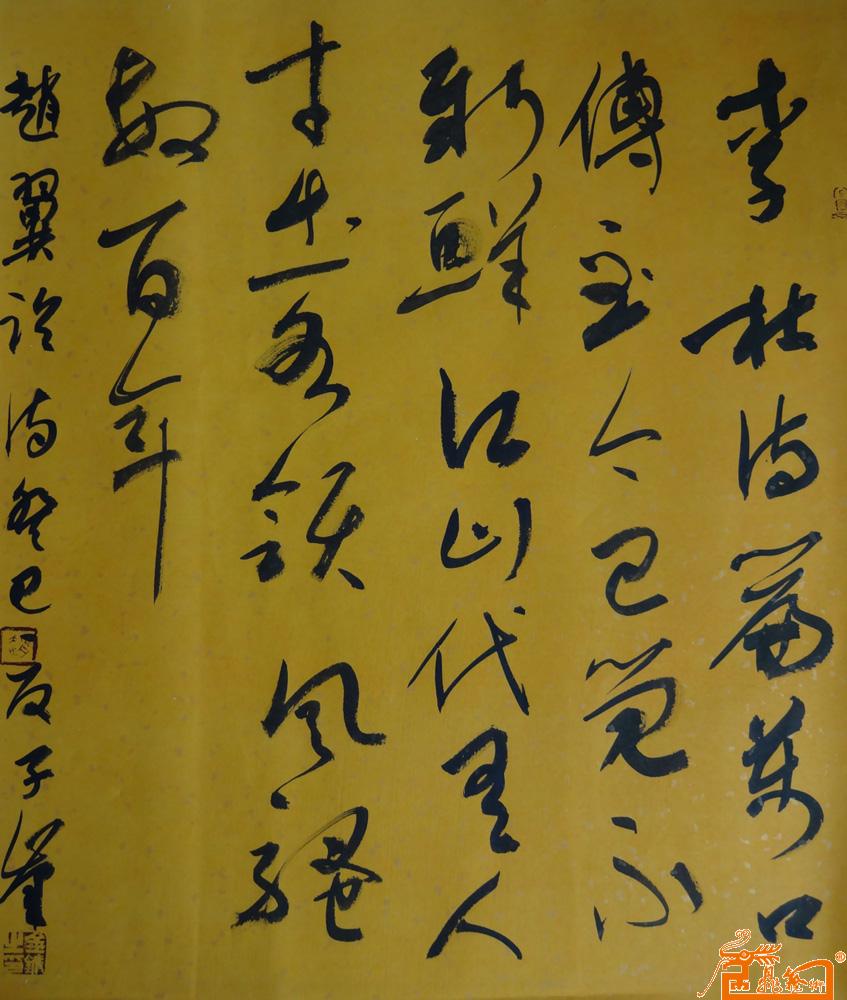 李杜诗篇万口
傳至今已觉不
新鲜江山代有人
才出各领风骚
数百年
趙翼论诗癸巳
子峰